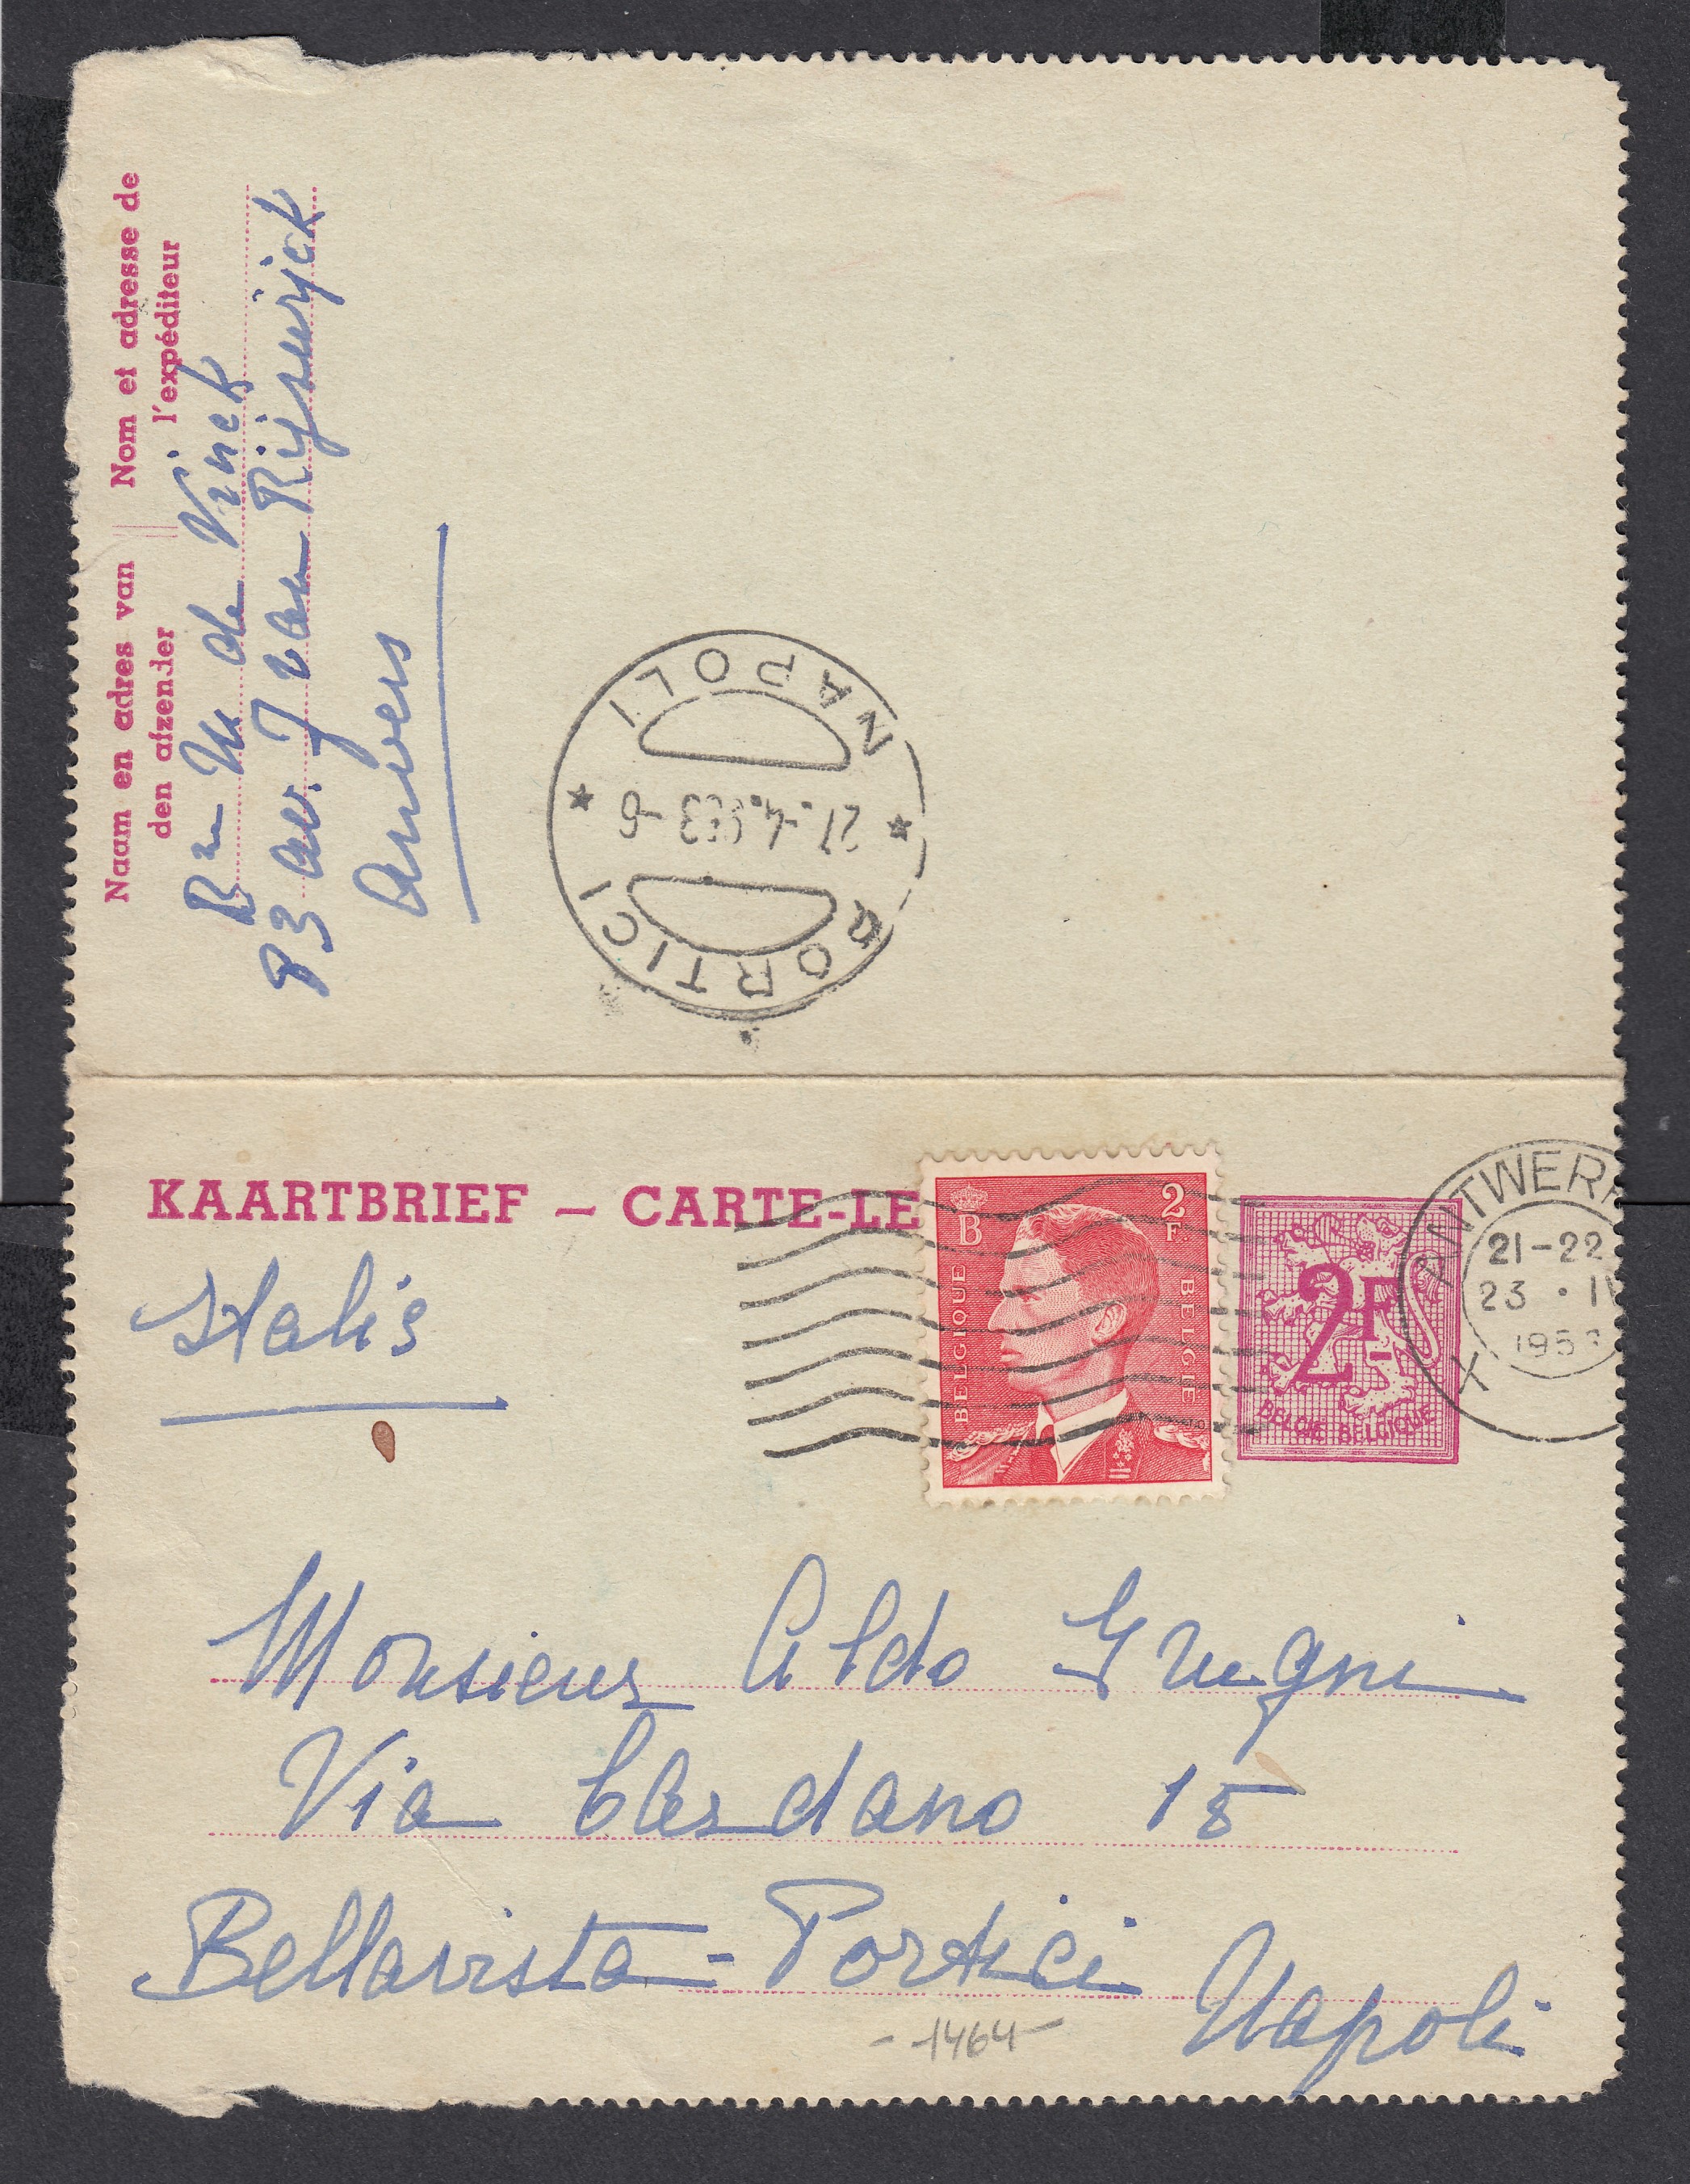 Naam en adres van
den afzender
Nom et adresse de
l'expéditeur
Bne M de Vinck
93 av. J van Rijswijck
Anvers
NAPOLI
PORTICI
KAARTBRIEF – CARTE-LE
Italie
B
2
F.
BELGIQUE
BELGIE
2F
BELGIE BELGIQUE
ANTWERP
21-22
23 · IV
195
X
Monsieur Aldo Grugni
Via 15
Bellavista - Portici
Napoli
- 1464 -